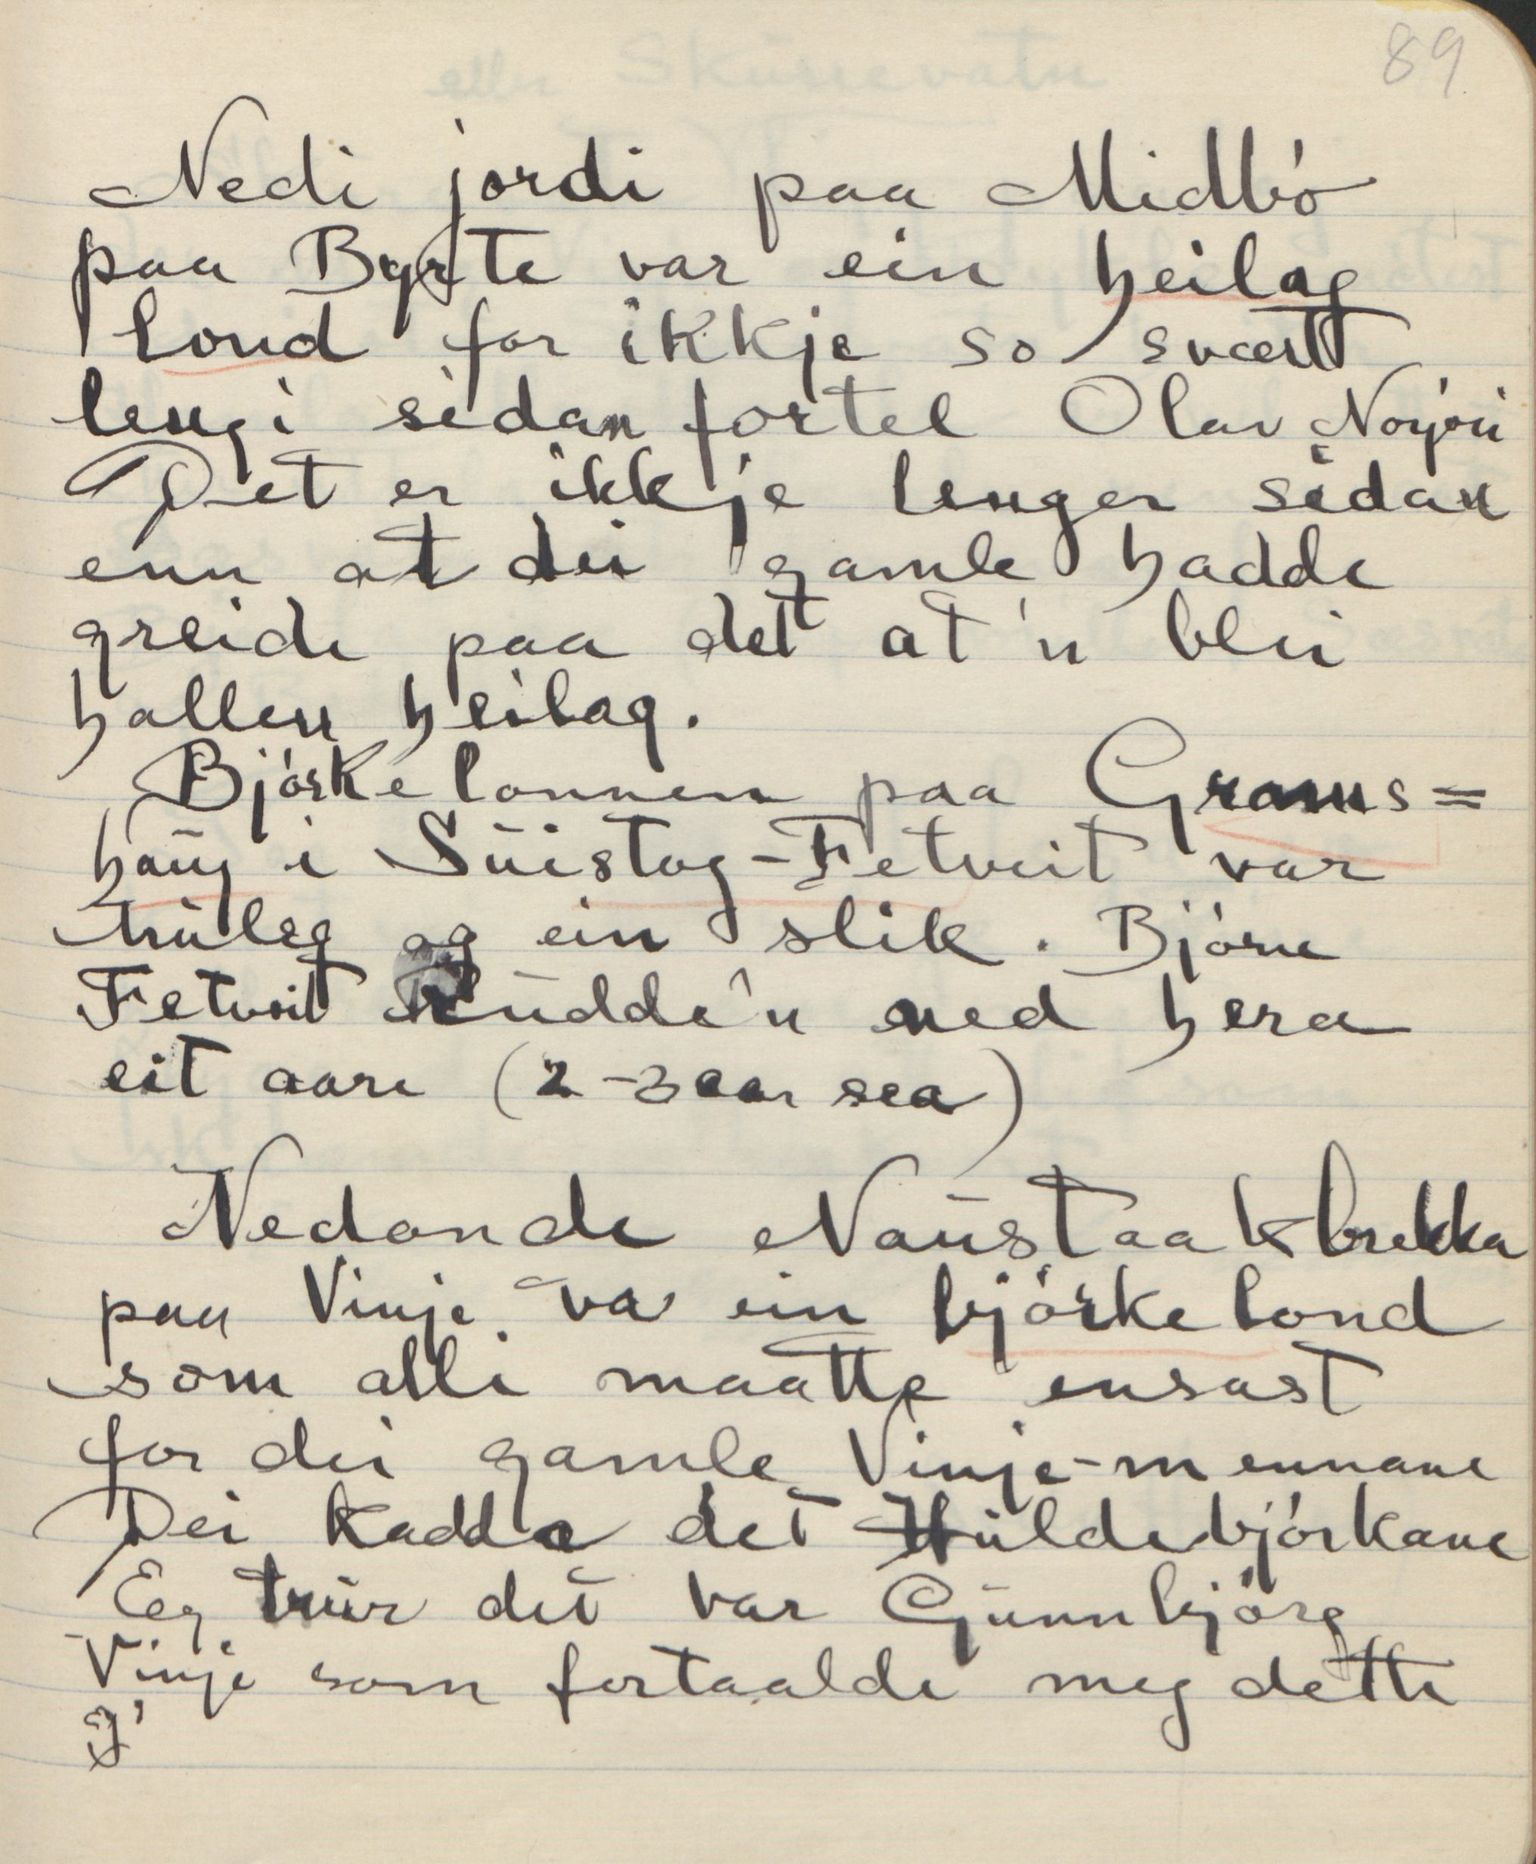 89
Nedi jordi paa Midbö
paa Byrte var ein heilag
lond for ikkje so svært
lengi sidan fortel Olav
Det er ikkje lenger sidan
enn at dei gamle hadde
greide paa det at'n blei
hallen heilag.
Björkelonnen paa Grams=
haug i Suistog-Fetveit var
truleg og ein slik. Björne
Fetveit rudde'n ned hera
eit aare (2-3 aar sea)
Nedande Naustaakbrekka
paa Vinje va ein björkelond
som alli maatte ensast
for dei gamle Vinje-mennane
Dei kadda det Huldebjörkane
Eeg trur det var Gunnbjörg
Vinje som fortaalde meg dette